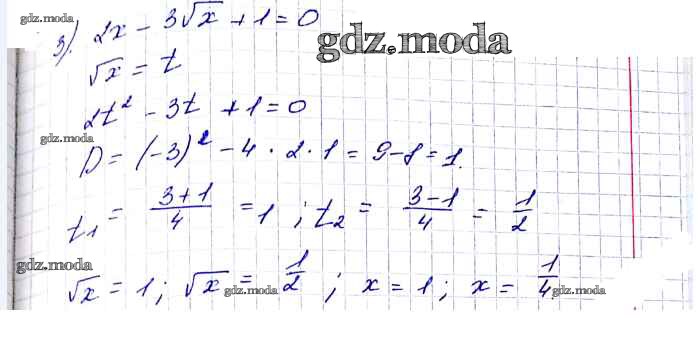 gdz.moda
3). 2x - 3√x + 1 = 0
gdz.moda
√x = t
2t² - 3t + 1 = 0
gdz.moda
D = (-3)² - 4 · 2 · 1 = 9 - 8 = 1.
t₁ = (3+1)/4 = 1 ; t₂ = (3-1)/4 = 1/2
gdz.moda
√x = 1 ; √x = 1/2 ; x = 1 ; x = 1/4
gdz.moda gdz.moda